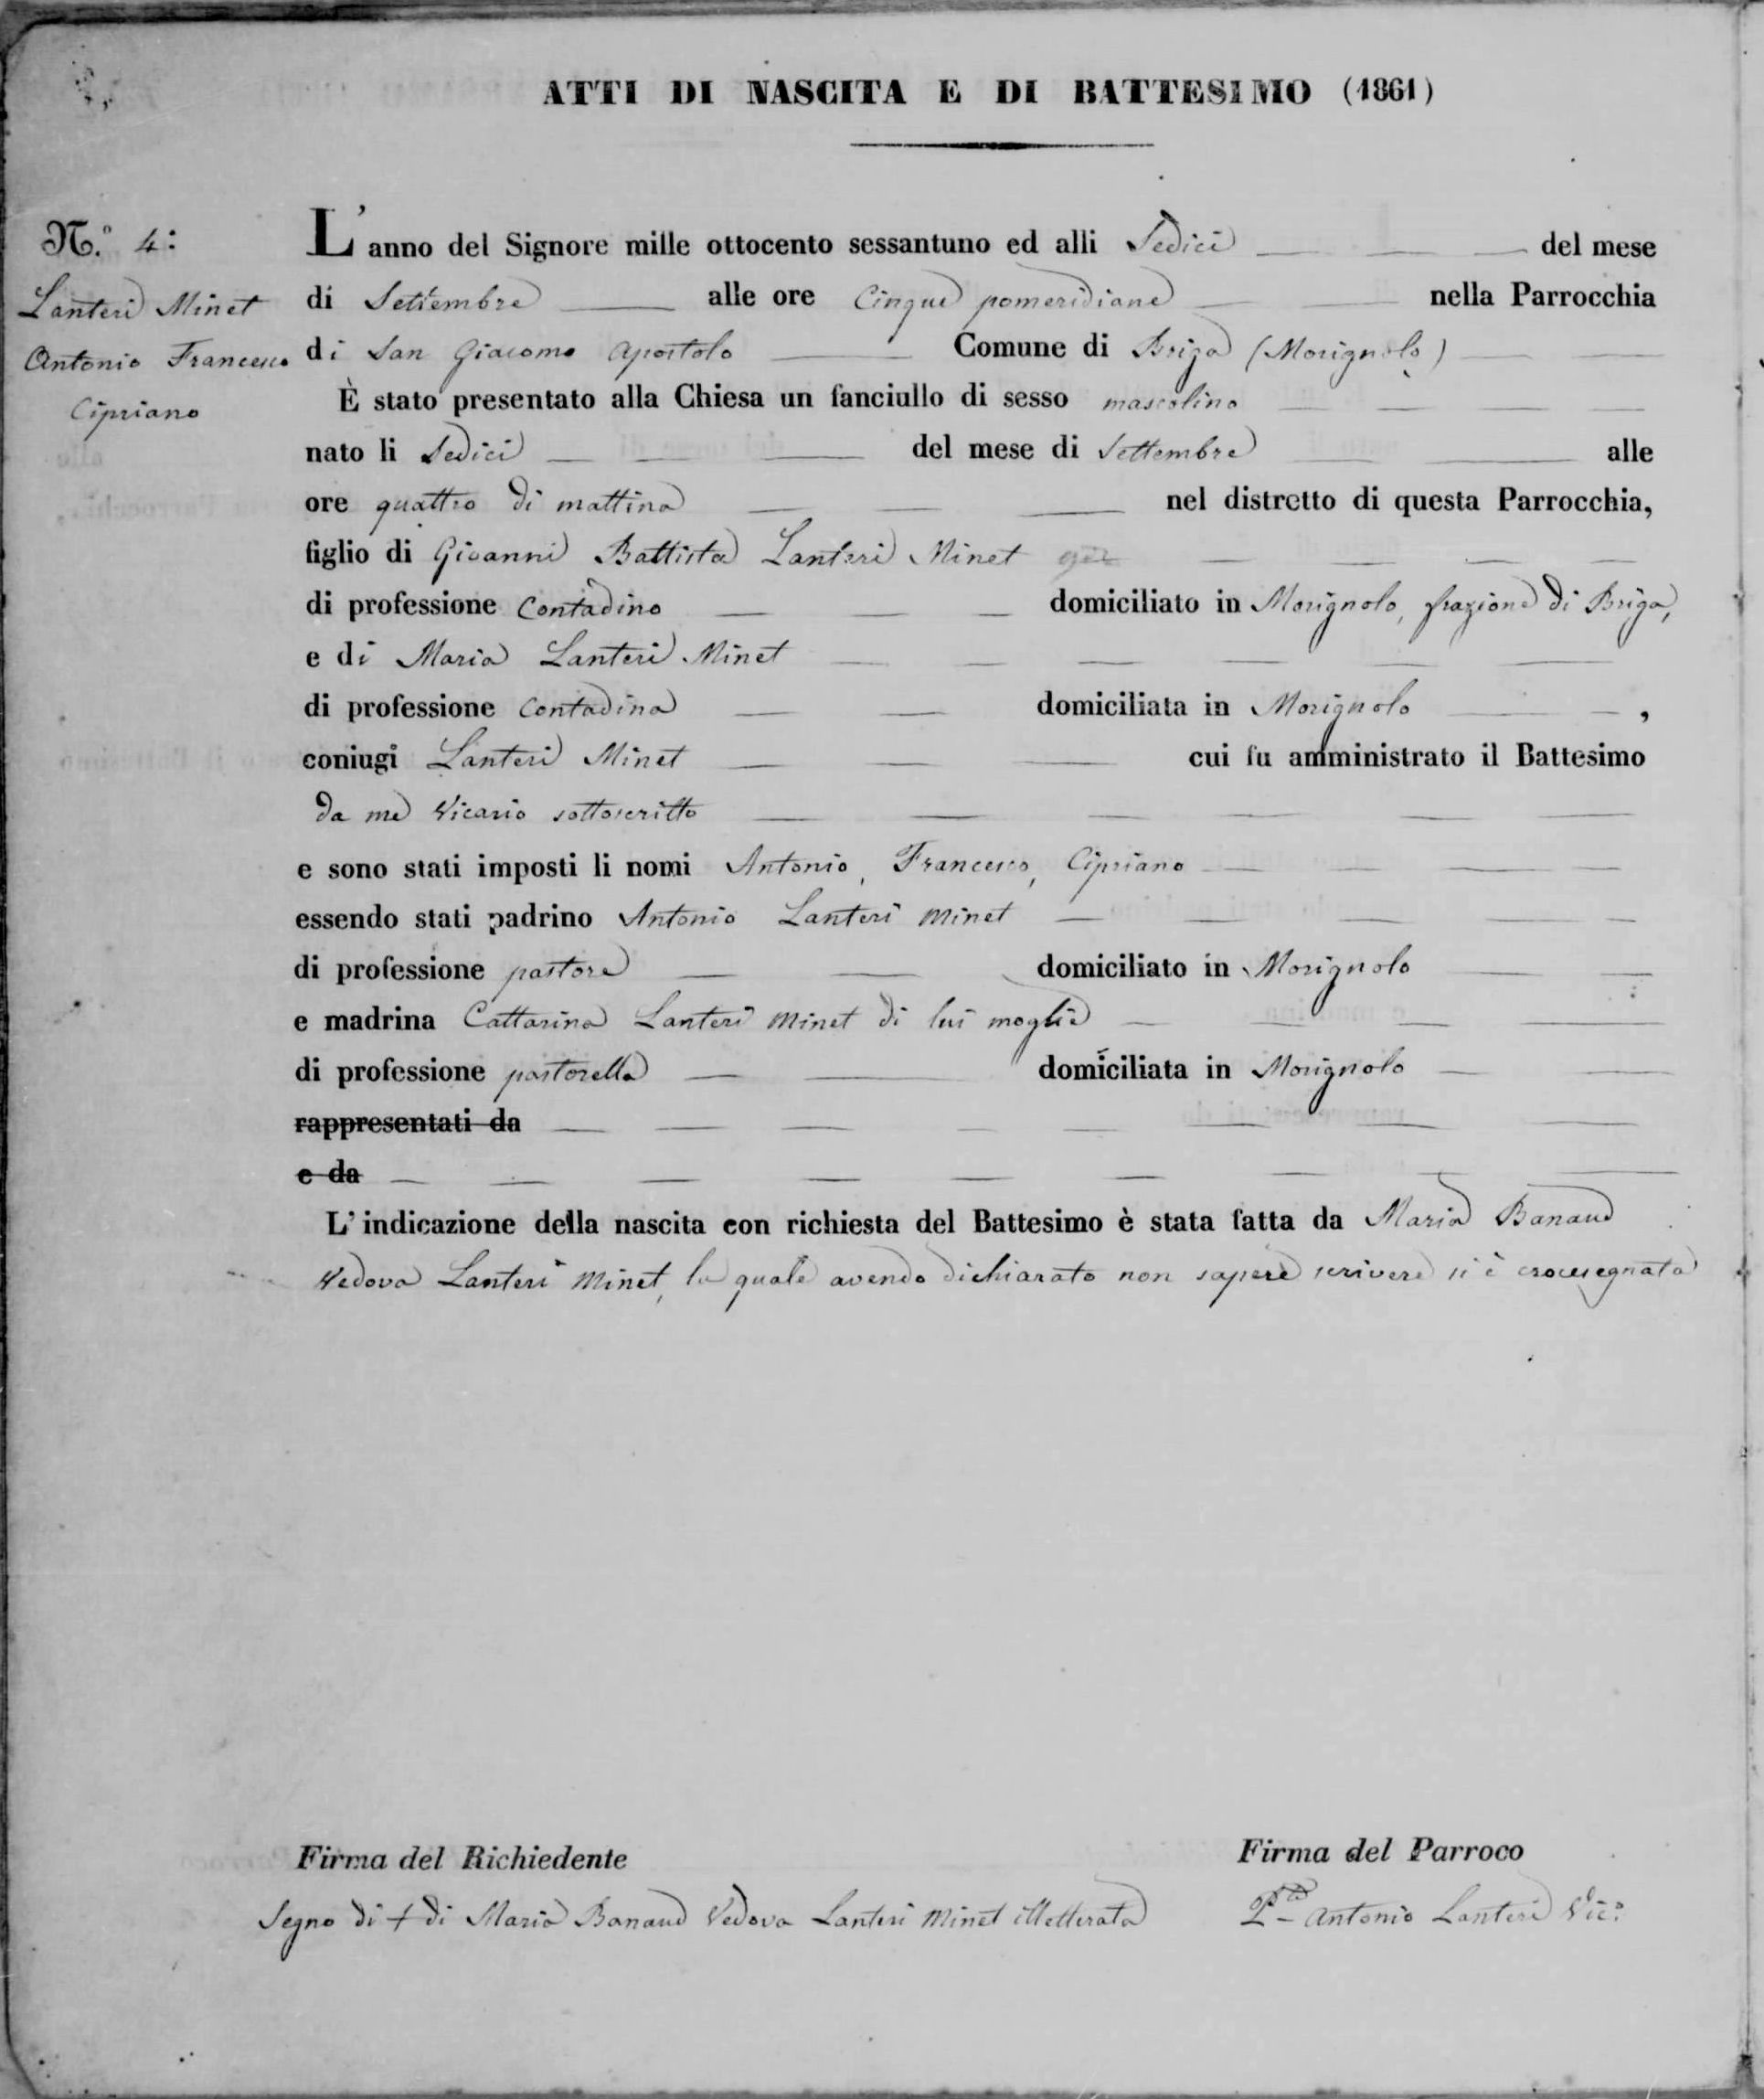 ATTI DI NASCITA E DI BATTESIMO (1861)
N.º 4:
Lanteri Minet
Antonio Francesco
Cipriano
L'anno del Signore mille ottocento sessantuno ed alli Sedici del mese
di Settembre alle ore Cinque pomeridiane nella Parrocchia
di San Giacomo Apostolo Comune di Briga (Morignolo)
È stato presentato alla Chiesa un fanciullo di sesso mascolino
nato li Sedici del mese di Settembre alle
ore quattro di mattina nel distretto di questa Parrocchia,
figlio di Giovanni Battista Lanteri Minet
di professione Contadino domiciliato in Morignolo, frazione di Briga,
e di Maria Lanteri Minet
di professione Contadina domiciliata in Morignolo,
coniugi Lanteri Minet cui fu amministrato il Battesimo
da me Vicario sottoscritto
e sono stati imposti li nomi Antonio, Francesco, Cipriano
essendo stati padrino Antonio Lanteri Minet
di professione pastore domiciliato in Morignolo
e madrina Cattarina Lanteri Minet di lui moglie
di professione pastorella domiciliata in Morignolo
rappresentati da
e da
L'indicazione della nascita con richiesta del Battesimo è stata fatta da Maria Banaud
Vedova Lanteri Minet, la quale avendo dichiarato non sapere scrivere si è crocesegnata
Firma del Richiedente
Segno di + di Maria Banaud Vedova Lanteri Minet illetterata
Firma del Parroco
Antonio Lanteri Vic.º